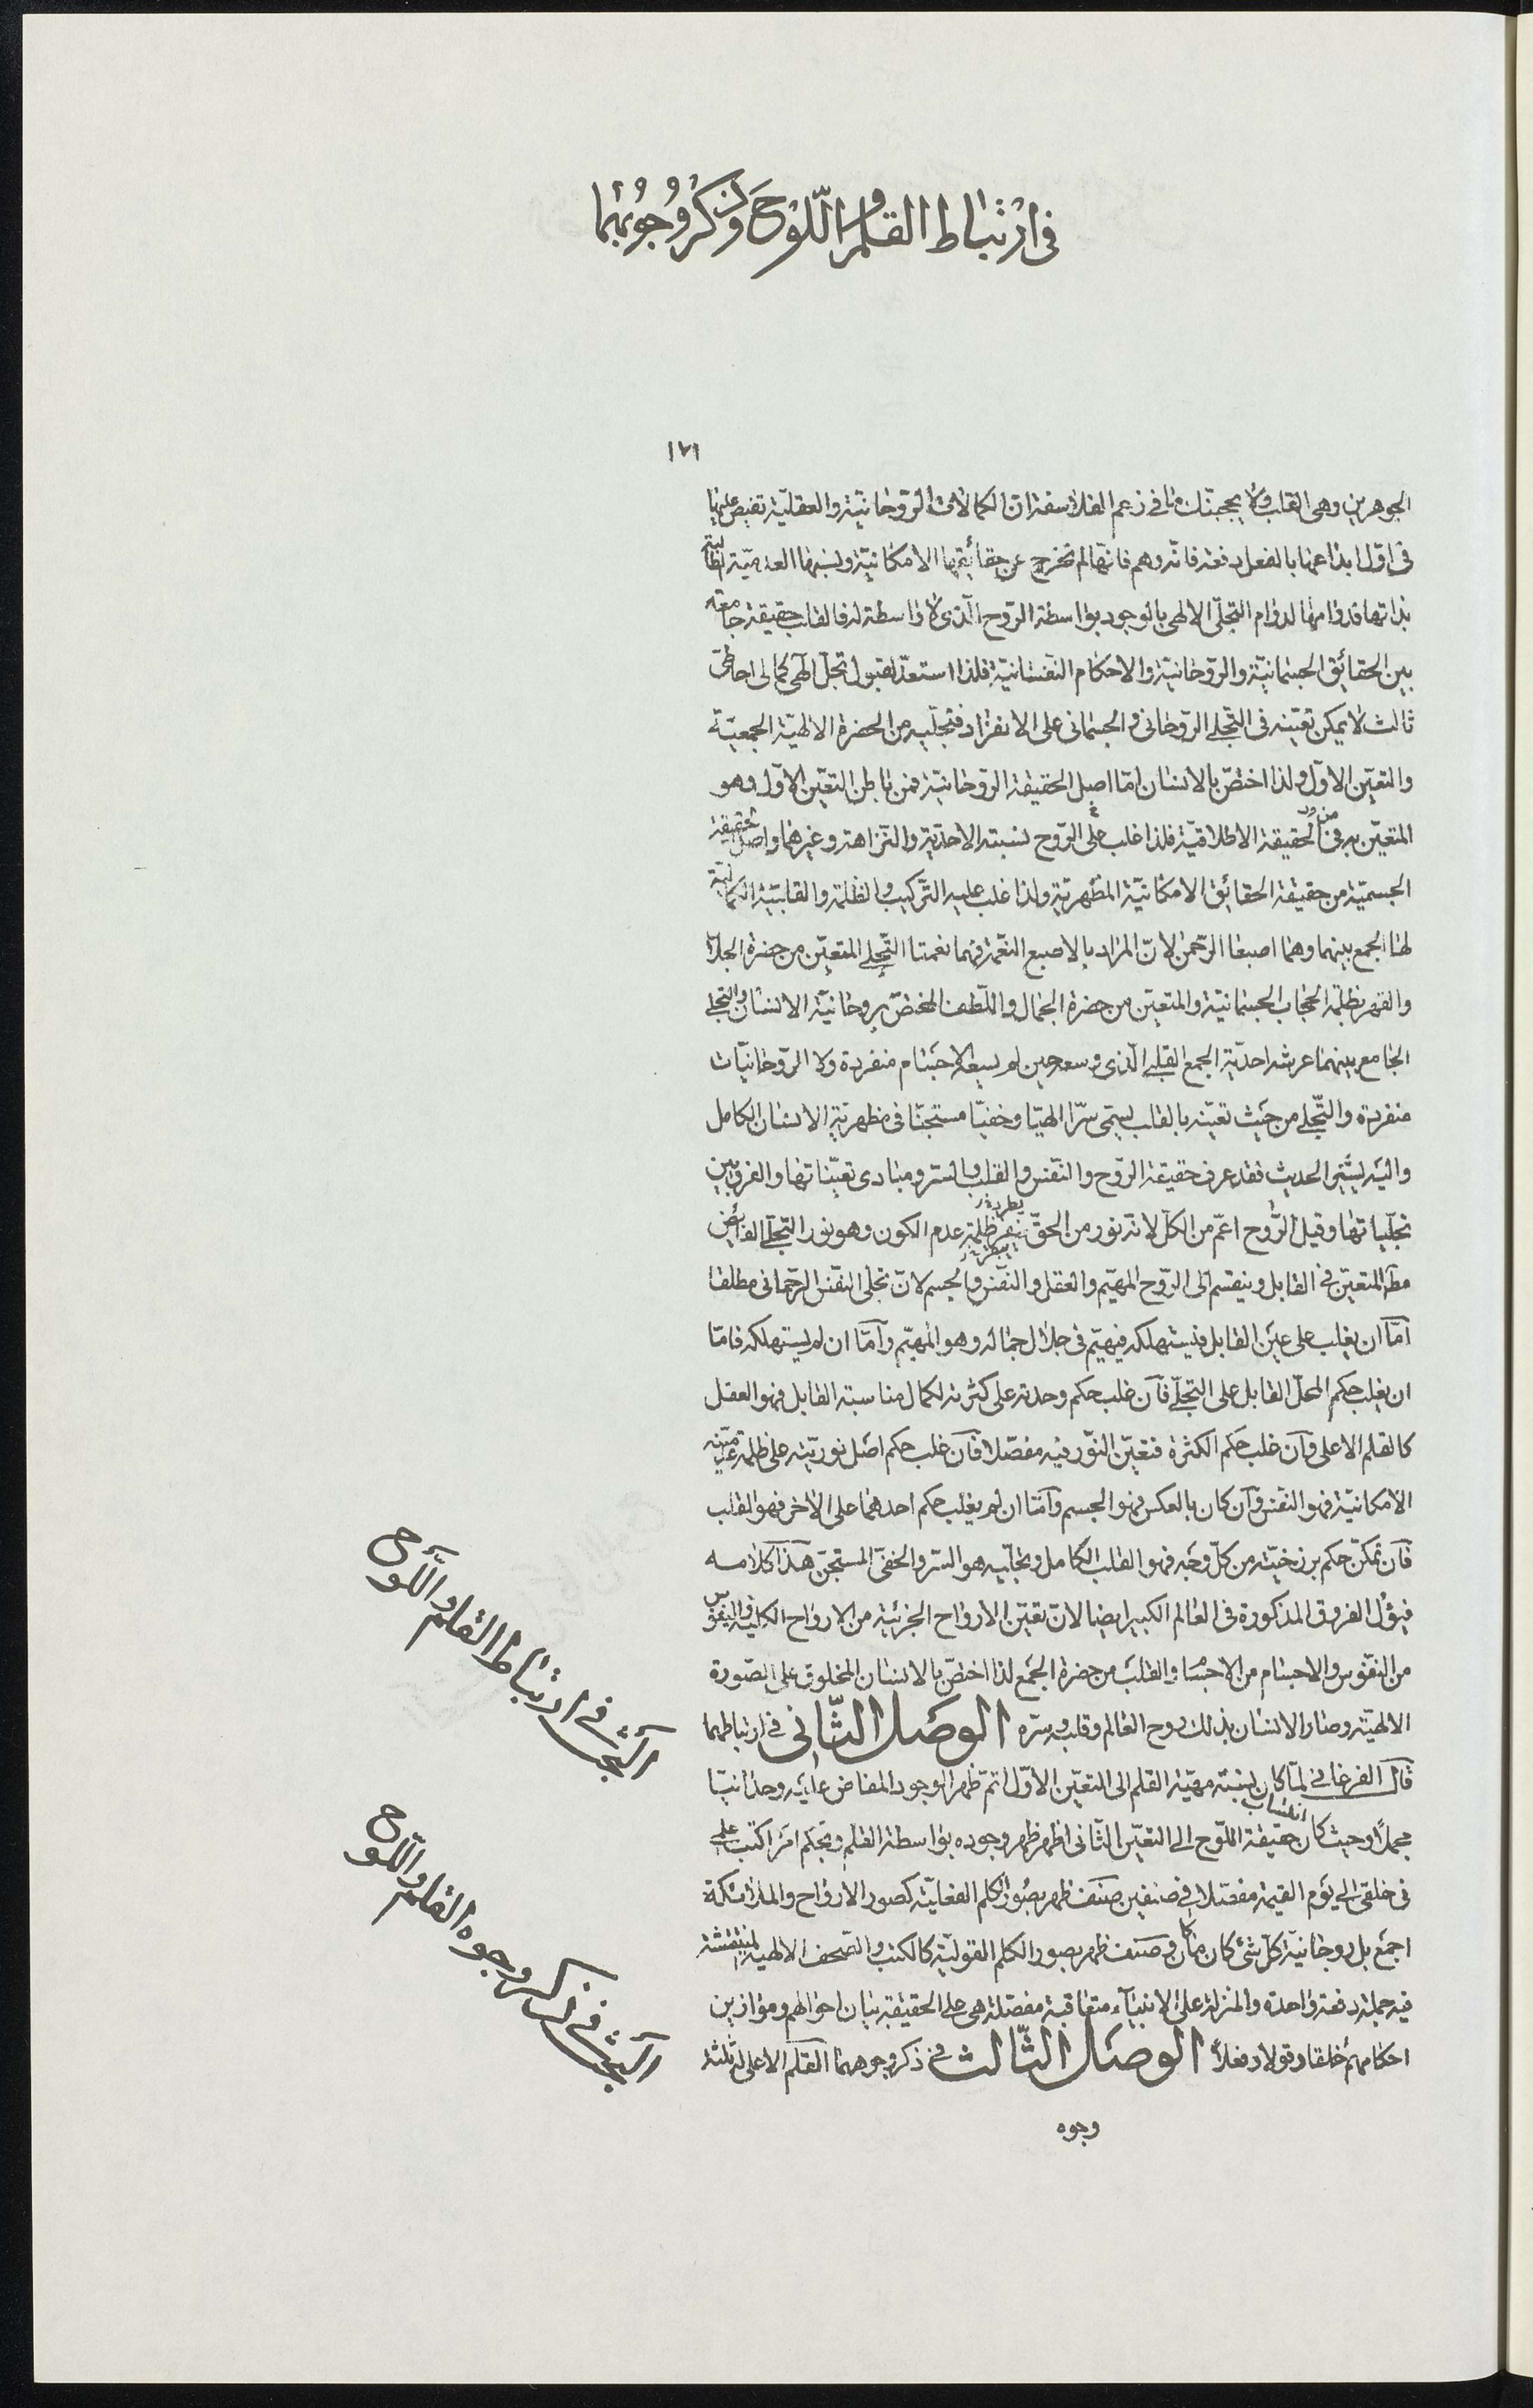 فى ارتباط القلم واللوح وذكر وجوههما
١٧١
الجوهرين وهى القلب ولا يحجبنّك ما فى زعم الفلاسفة ان الكمالات الروحانيّة والعقليّة تفيض عليها
فى اوّل ابداعها بالفعل دفعة فانّه وهم فانّها لم تخرج عن حقائقها الامكانيّة ونسبتها العدميّة
بذاتها فدوامها لدوام التجلّى الالهى بالوجود بواسطة الرّوح الّذى لا واسطة له فالقلب حقيقة جامعة
بين الحقائق الجسمانيّة والرّوحانيّة والاحكام النفسانيّة فلذا استعدّ لقبول تجلّ الهى كمالى احاطىّ
ثالث لا يمكن تعيّنه فى التجلى الرّوحانى والجسمانى على الانفراد فتجلّيه من الحضرة الالهيّة الجمعيّة
والتعيّن الاوّل ولذا اختصّ بالانسان امّا اصل الحقيقة الرّوحانيّة فمن باطن التعيّن الاوّل وهو
المتعيّن به فى الحقيقة الاطلاقيّة فلذا غلب على الرّوح نسبته الاحديّة والنزاهة وغيرهما واصل الحقيقة
الجسميّة من حقيقة الحقائق الامكانيّة المظهريّة ولذا غلب عليه التركيب والظلمة والقابليّة
لها الجمع بينهما وهما اصبعا الرّحمن لانّ المراد بالاصبع النّعمة فهما نعمتا التّجلى المتعيّن من حضرة الجلال
والقهر بظلمة الحجاب الجسمانيّة والمتعيّن من حضرة الجمال واللّطف المختصّ بروحانيّة الانسان والتجلى
الجامع بينهما عرشه احديّة الجمع القلبى الّذى وسعه حين لم يسعه الاجسام منفردة ولا الرّوحانيّات
منفردة والتّجلى من حيث تعيّنه بالقلب يسمّى سرّا الهيّا وخفيّا مستجنّا فى مظهريّة الانسان الكامل
واليه يشير الحديث فقد عرف حقيقة الرّوح والنّفس والقلب والسرّ ومبادى تعيّناتها والفرق بين
تجلّياتها وقيل الرّوح اعمّ من الكلّ لانّه نور من الحقّ ظلمة عدم الكون وهو نور التجلّى الفايض
المتعيّن فى القابل وينقسم الى الرّوح المهيّم والعقل والنّفس والجسم لانّ تجلّى النفس الرّحمانى مطلقا
امّا ان يغلب على عين القابل فيستهلكه فيهيّم فى جلال جماله وهو المهيّم وامّا ان لم يستهلكه فامّا
ان يغلب حكم المحلّ القابل على التجلّى فان غلب حكم وحدته على كثرته لكمال مناسبته القابل فهو العقل
كالقلم الاعلى وان غلب حكم الكثرة فتعيّن النّور فيه مفصّلا فان غلب حكم اصل نوريّته على ظلمة
الامكانيّة فهو النّفس وان كان بالعكس فهو الجسم وامّا ان لم يغلب حكم احدهما على الاخر فهو القلب
فان تمكّن حكم برزخيّته من كلّ وجه فهو القلب الكامل وتجلّيه هو السرّ والخفىّ المستجنّ هذا كلامه
الفروق المذكورة فى العالم الكبير ايضا لانّ تعيّن الارواح الجزئية من الارواح الكلّية والنفوس
من النّفوس والاجسام من الاجسام والقلب من حضرة الجمع لذا اختصّ بالانسان المخلوق على الصّورة
الالهيّة وصار الانسان بذلك روح العالم وقلبه وسرّه الوصل الثّانى فى ارتباطهما
قال الفرغانى لمّا كان نسبته مهيّة القلم الى التعيّن الاوّل اتمّ ظهر الوجود المفاض عليه وحدانيّا
مجملا وحيث كان انتساب حقيقة اللّوح الى التعيّن الثّانى اظهر ظهر وجوده بواسطة القلم وبحكم امر اكتب علمى
فى خلقى الى يوم القيمة مفصّلا فى صنفين صنف ظهر بصور الكلم الفعليّة كصور الارواح والملائكة
اجمع بل روحانيّة كلّ شئ كان ما كان وصنف ظهر بصور الكلم القوليّة كالكتب والصّحف الالهية المنتقشة
فيه جملة دفعة واحدة والمنزلة على الانبياء متعاقبة مفصّلة هى على الحقيقة بيان احوالهم وموازين
احكامهم خلقا وقولا وفعلا الوصل الثّالث فى ذكر وجوههما القلم الاعلى له ثلثة
وجوه
البحث فى ارتباط القلم واللّوح
البحث فى ذكر وجوه القلم واللّوح